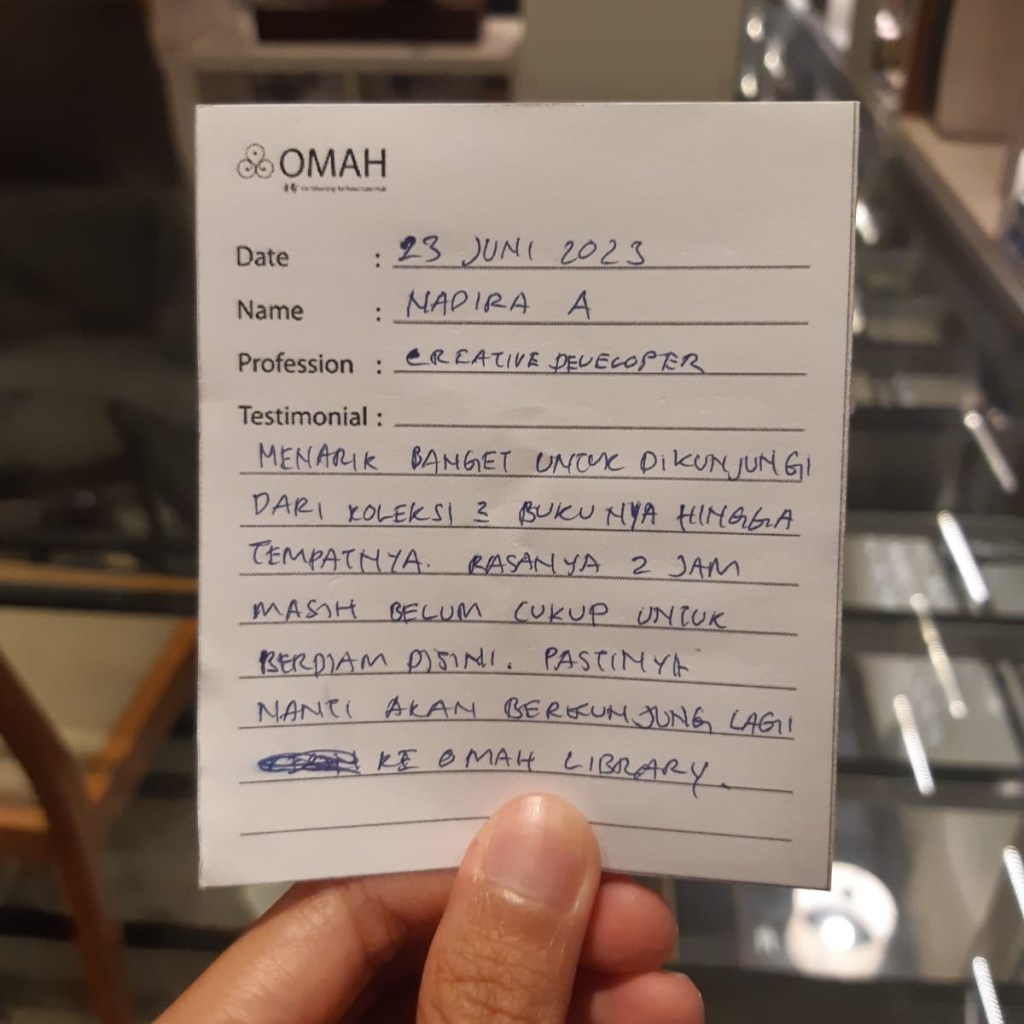 OMAH
Date : 23 JUNI 2023
Name : NADIRA A
Profession : CREATIVE DEVELOPER
Testimonial :
MENARIK BANGET UNTUK DIKUNJUNGI
DARI KOLEKSI 2 BUKUNYA HINGGA
TEMPATNYA. RASANYA 2 JAM
MASIH BELUM CUKUP UNTUK
BERDIAM DISINI. PASTINYA
NANTI AKAN BERKUNJUNG LAGI
KE OMAH LIBRARY.